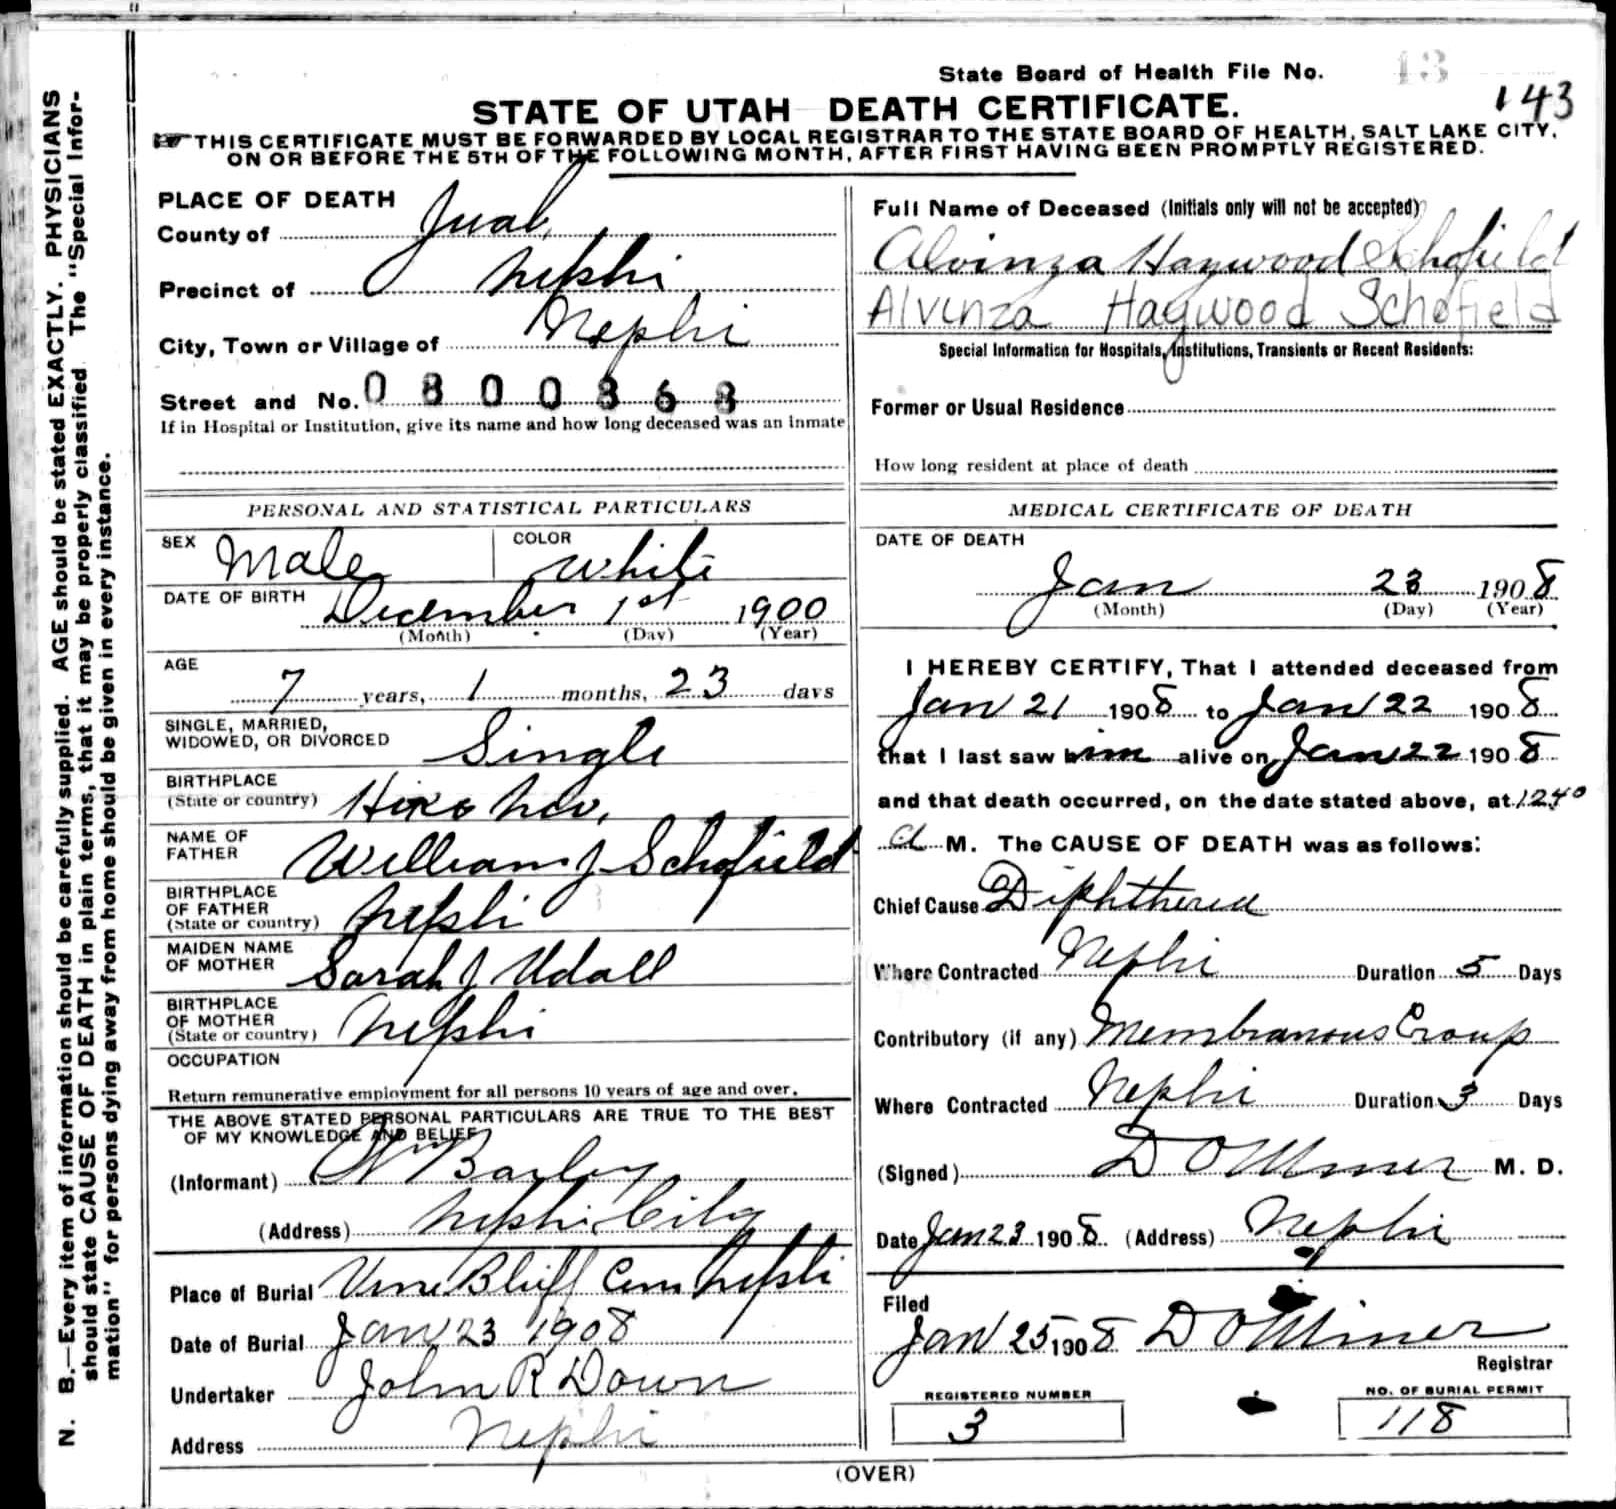 State Board of Health File No. 13
143
STATE OF UTAH DEATH CERTIFICATE.
THIS CERTIFICATE MUST BE FORWARDED BY LOCAL REGISTRAR TO THE STATE BOARD OF HEALTH, SALT LAKE CITY,
ON OR BEFORE THE 5TH OF THE FOLLOWING MONTH, AFTER FIRST HAVING BEEN PROMPTLY REGISTERED.
N. B.—Every item of information should be carefully supplied. AGE should be stated EXACTLY. PHYSICIANS
should state CAUSE OF DEATH in plain terms, that it may be properly classified. The "Special Infor-
mation" for persons dying away from home should be given in every instance.
PLACE OF DEATH
County of Juab,
Precinct of Nephi
City, Town or Village of Nephi
Street and No. 0800368
If in Hospital or Institution, give its name and how long deceased was an inmate
PERSONAL AND STATISTICAL PARTICULARS
SEX Male COLOR White
DATE OF BIRTH December 1st 1900
(Month) (Day) (Year)
AGE
7 years, 1 months, 23 days
SINGLE, MARRIED,
WIDOWED, OR DIVORCED Single
BIRTHPLACE
(State or country) Hiko Nev,
NAME OF
FATHER William J Schofield
BIRTHPLACE
OF FATHER
(State or country) Nephi
MAIDEN NAME
OF MOTHER Sarah J Udall
BIRTHPLACE
OF MOTHER
(State or country) Nephi
OCCUPATION
Return remunerative employment for all persons 10 years of age and over.
THE ABOVE STATED PERSONAL PARTICULARS ARE TRUE TO THE BEST
OF MY KNOWLEDGE AND BELIEF
(Informant) Wm Bailey
(Address) Nephi City
Place of Burial Vine Bluff Cem Nephi
Date of Burial Jan 23 1908
Undertaker John R Down
Address Nephi
Full Name of Deceased (Initials only will not be accepted)
Alvinza Haywood Schofield
Alvinza Haywood Schofield
Special Information for Hospitals, Institutions, Transients or Recent Residents:
Former or Usual Residence
How long resident at place of death
MEDICAL CERTIFICATE OF DEATH
DATE OF DEATH
Jan 23 1908
(Month) (Day) (Year)
I HEREBY CERTIFY, That I attended deceased from
Jan 21 1908 to Jan 22 1908
that I last saw him alive on Jan 22 1908
and that death occurred, on the date stated above, at 1240
a M. The CAUSE OF DEATH was as follows:
Chief Cause Diphtheria
Where Contracted Nephi Duration 5 Days
Contributory (if any) Membranous Croup
Where Contracted Nephi Duration 3 Days
(Signed) D O Miner M. D.
Date Jan 23 1908 (Address) Nephi
Filed
Jan 25 1908 D O Miner
Registrar
REGISTERED NUMBER
3
NO. OF BURIAL PERMIT
118
(OVER)